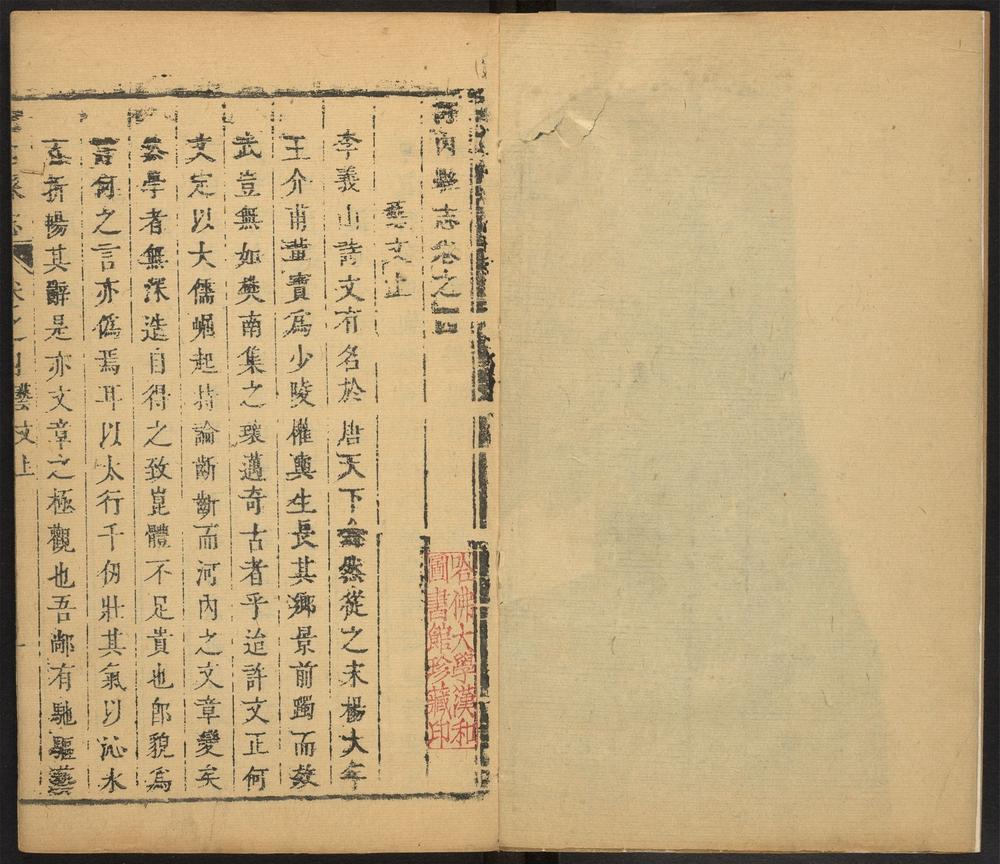 河內縣志卷之四
藝文上
李義山詩文有名於唐天下翕然從之末楊大年
王介甫黃寶為少陵權輿生長其鄉景前躅而效
武豈無如樊南集之瓌邁奇古者乎迨許文正何
文定以大儒蝸起持論斷斷而河內之文章變矣
學者無深造自得之致崑體不足貴也郎貌為
言何之言亦偽焉耳以太行千仞壯其氣以沁水
揚其辭是亦文章之極觀也吾鄉有馳驅藝
卷之四 藝文上 一
哈佛大學漢和
圖書館珍藏印